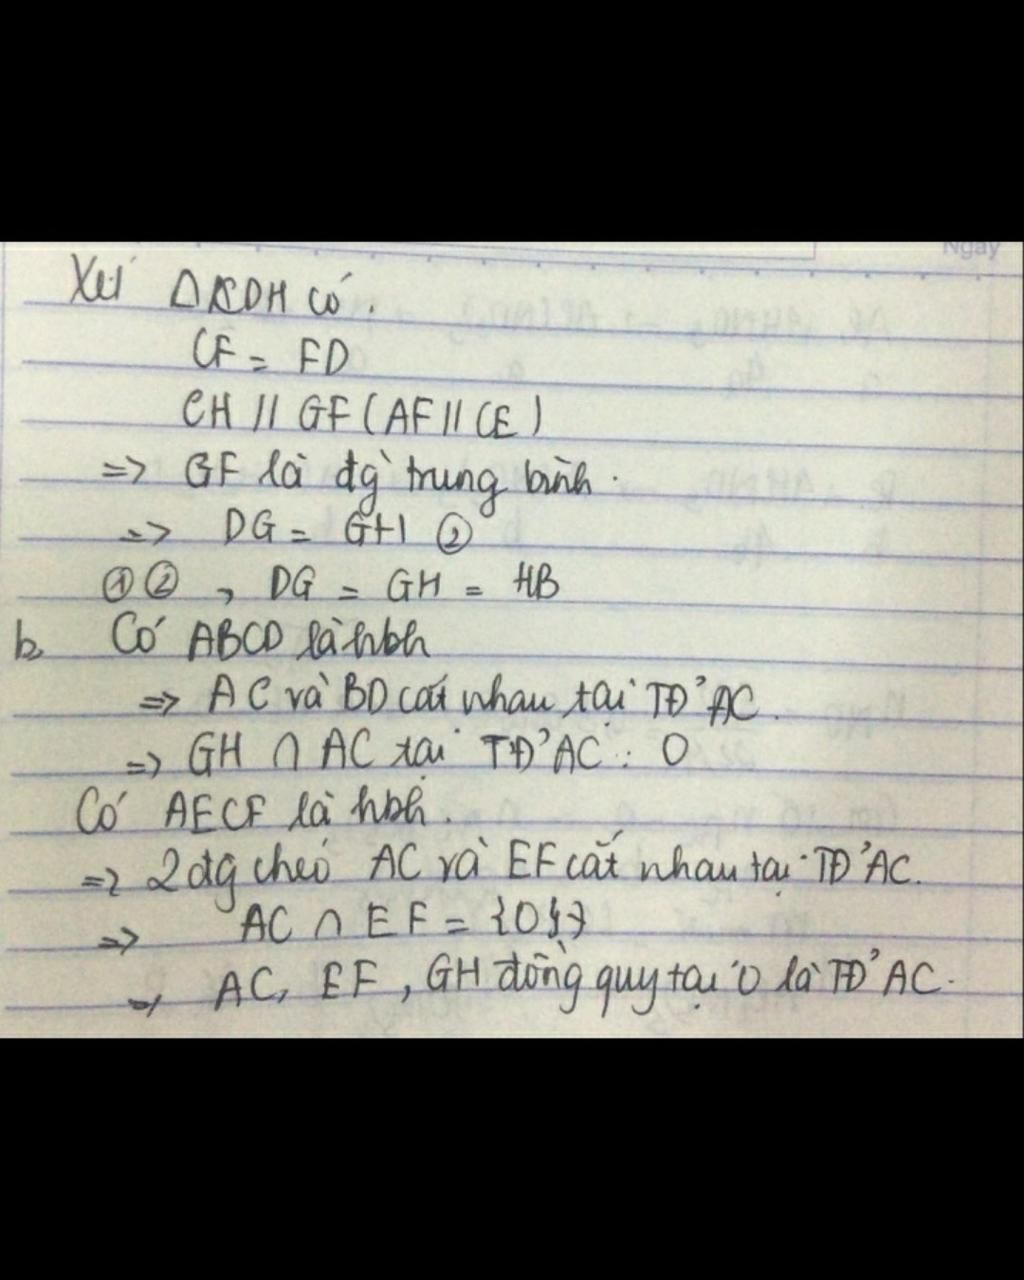 Ngày
Xét ΔCDH có:
CF = FD
CH // GF (AF // CE)
=> GF là đg trung bình.
=> DG = GH ②
①② , DG = GH = HB
b, Có ABCD là hbh
=> AC và BD cắt nhau tại TĐ' AC.
=> GH ∩ AC tại TĐ' AC : O
Có AECF là hbh.
=> 2 đg chéo AC và EF cắt nhau tại TĐ' AC.
=> AC ∩ EF = {O}
=> AC, EF, GH đồng quy tại O là TĐ' AC.